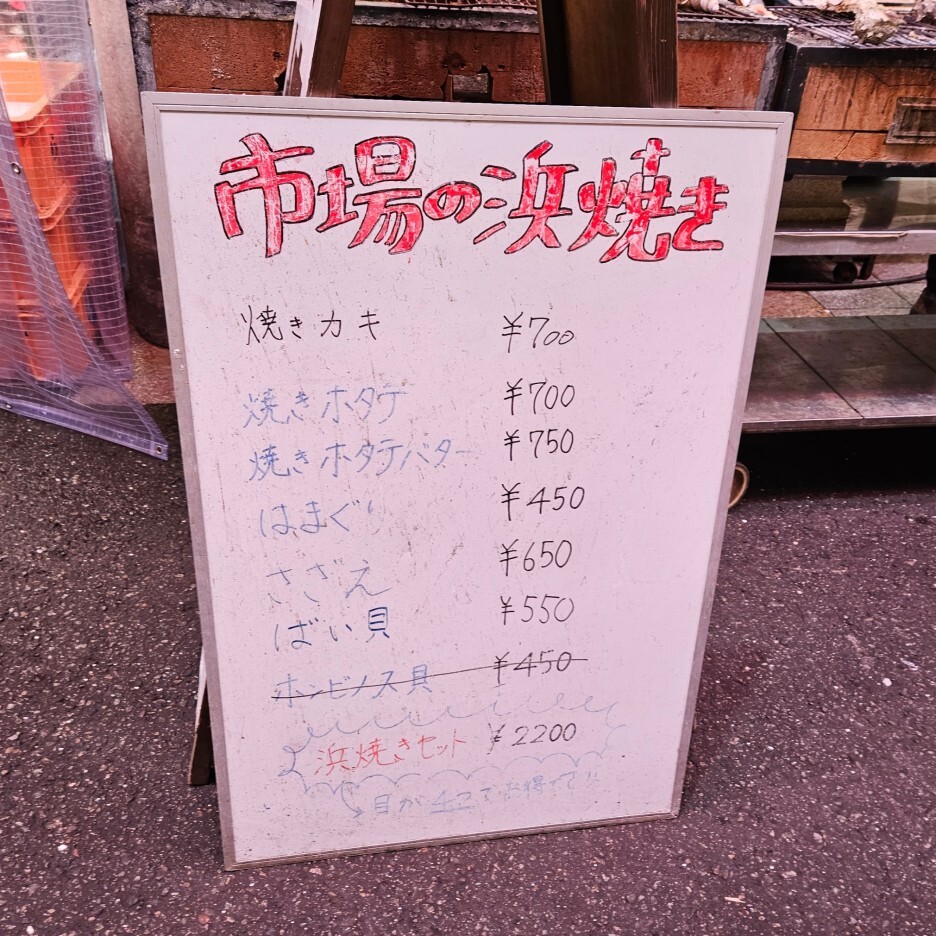 市場の浜焼き
焼きカキ ¥700
焼きホタテ ¥700
焼きホタテバター ¥750
はまぐり ¥450
さざえ ¥650
ばい貝 ¥550
ホンビノス貝 ¥450
浜焼きセット ¥2200
貝が4コでお得です!!